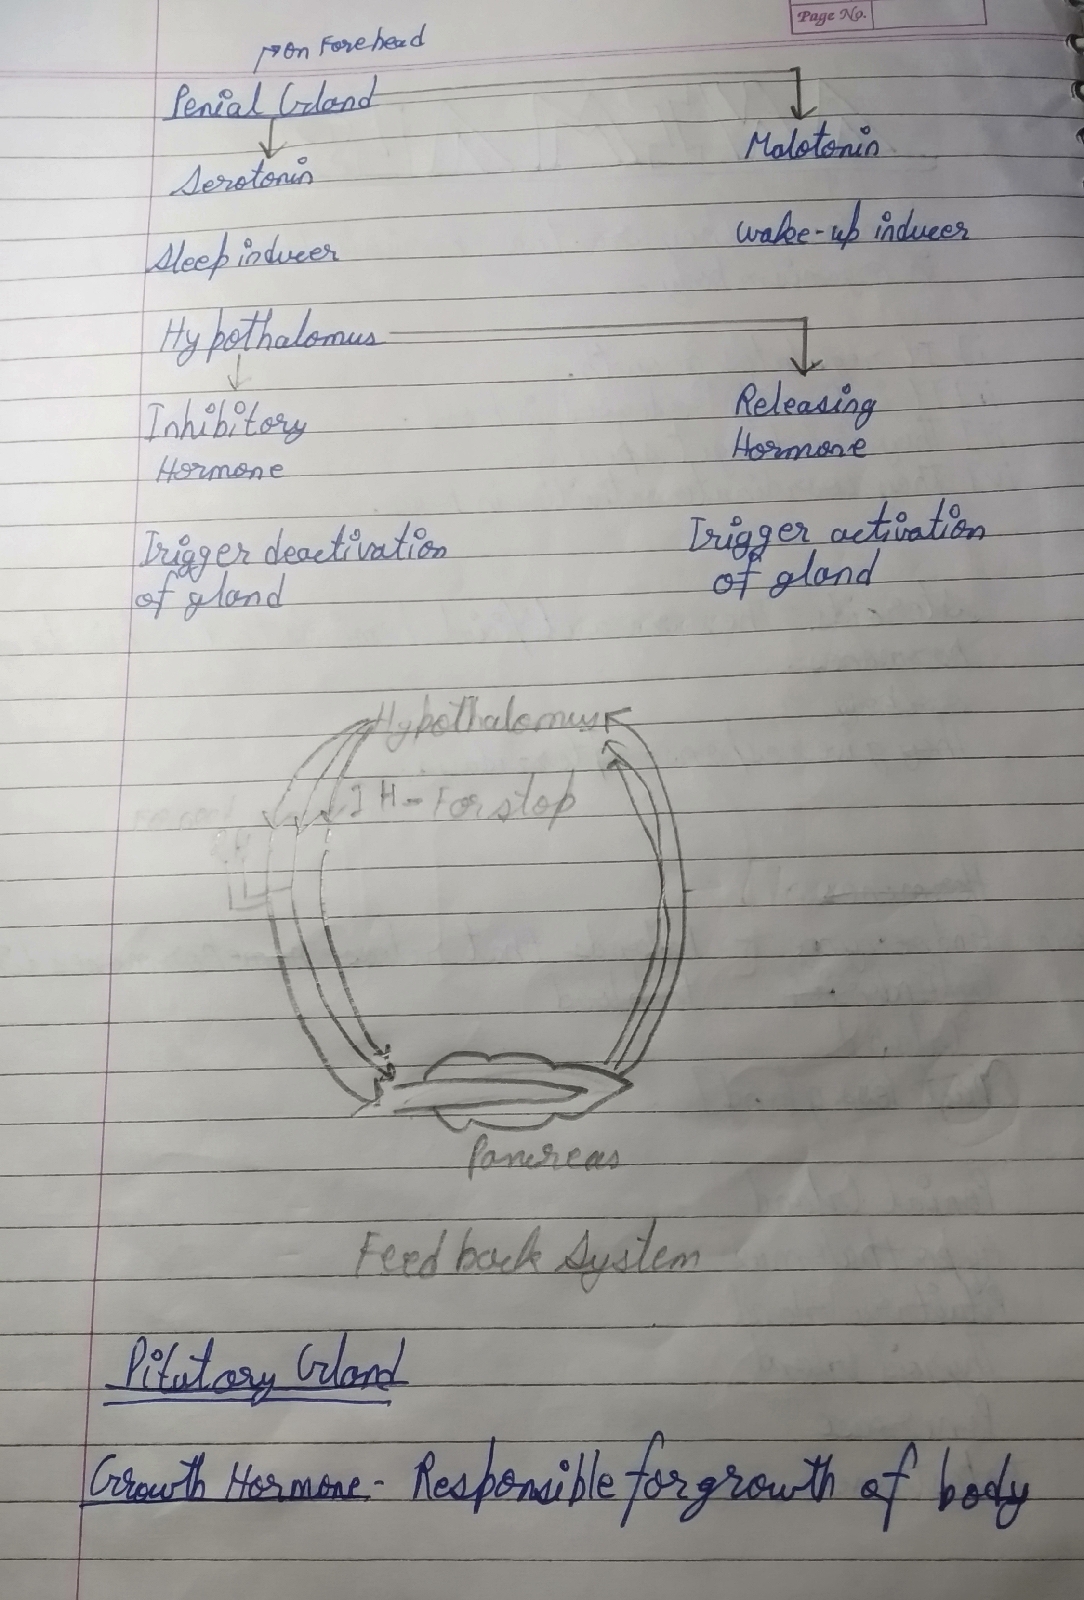 Page No.
on Forehead
Penial Gland
Serotonin
Malotonin
Sleep inducer
wake-up inducer
Hypothalomus
Inhibitory
Hormone
Releasing
Hormone
Trigger deactivation
of gland
Trigger activation
of gland
Hypothalomus
IH - For stop
Pancreas
Feed back System
Pitutary Gland
Growth Hormone - Responsible for growth of body